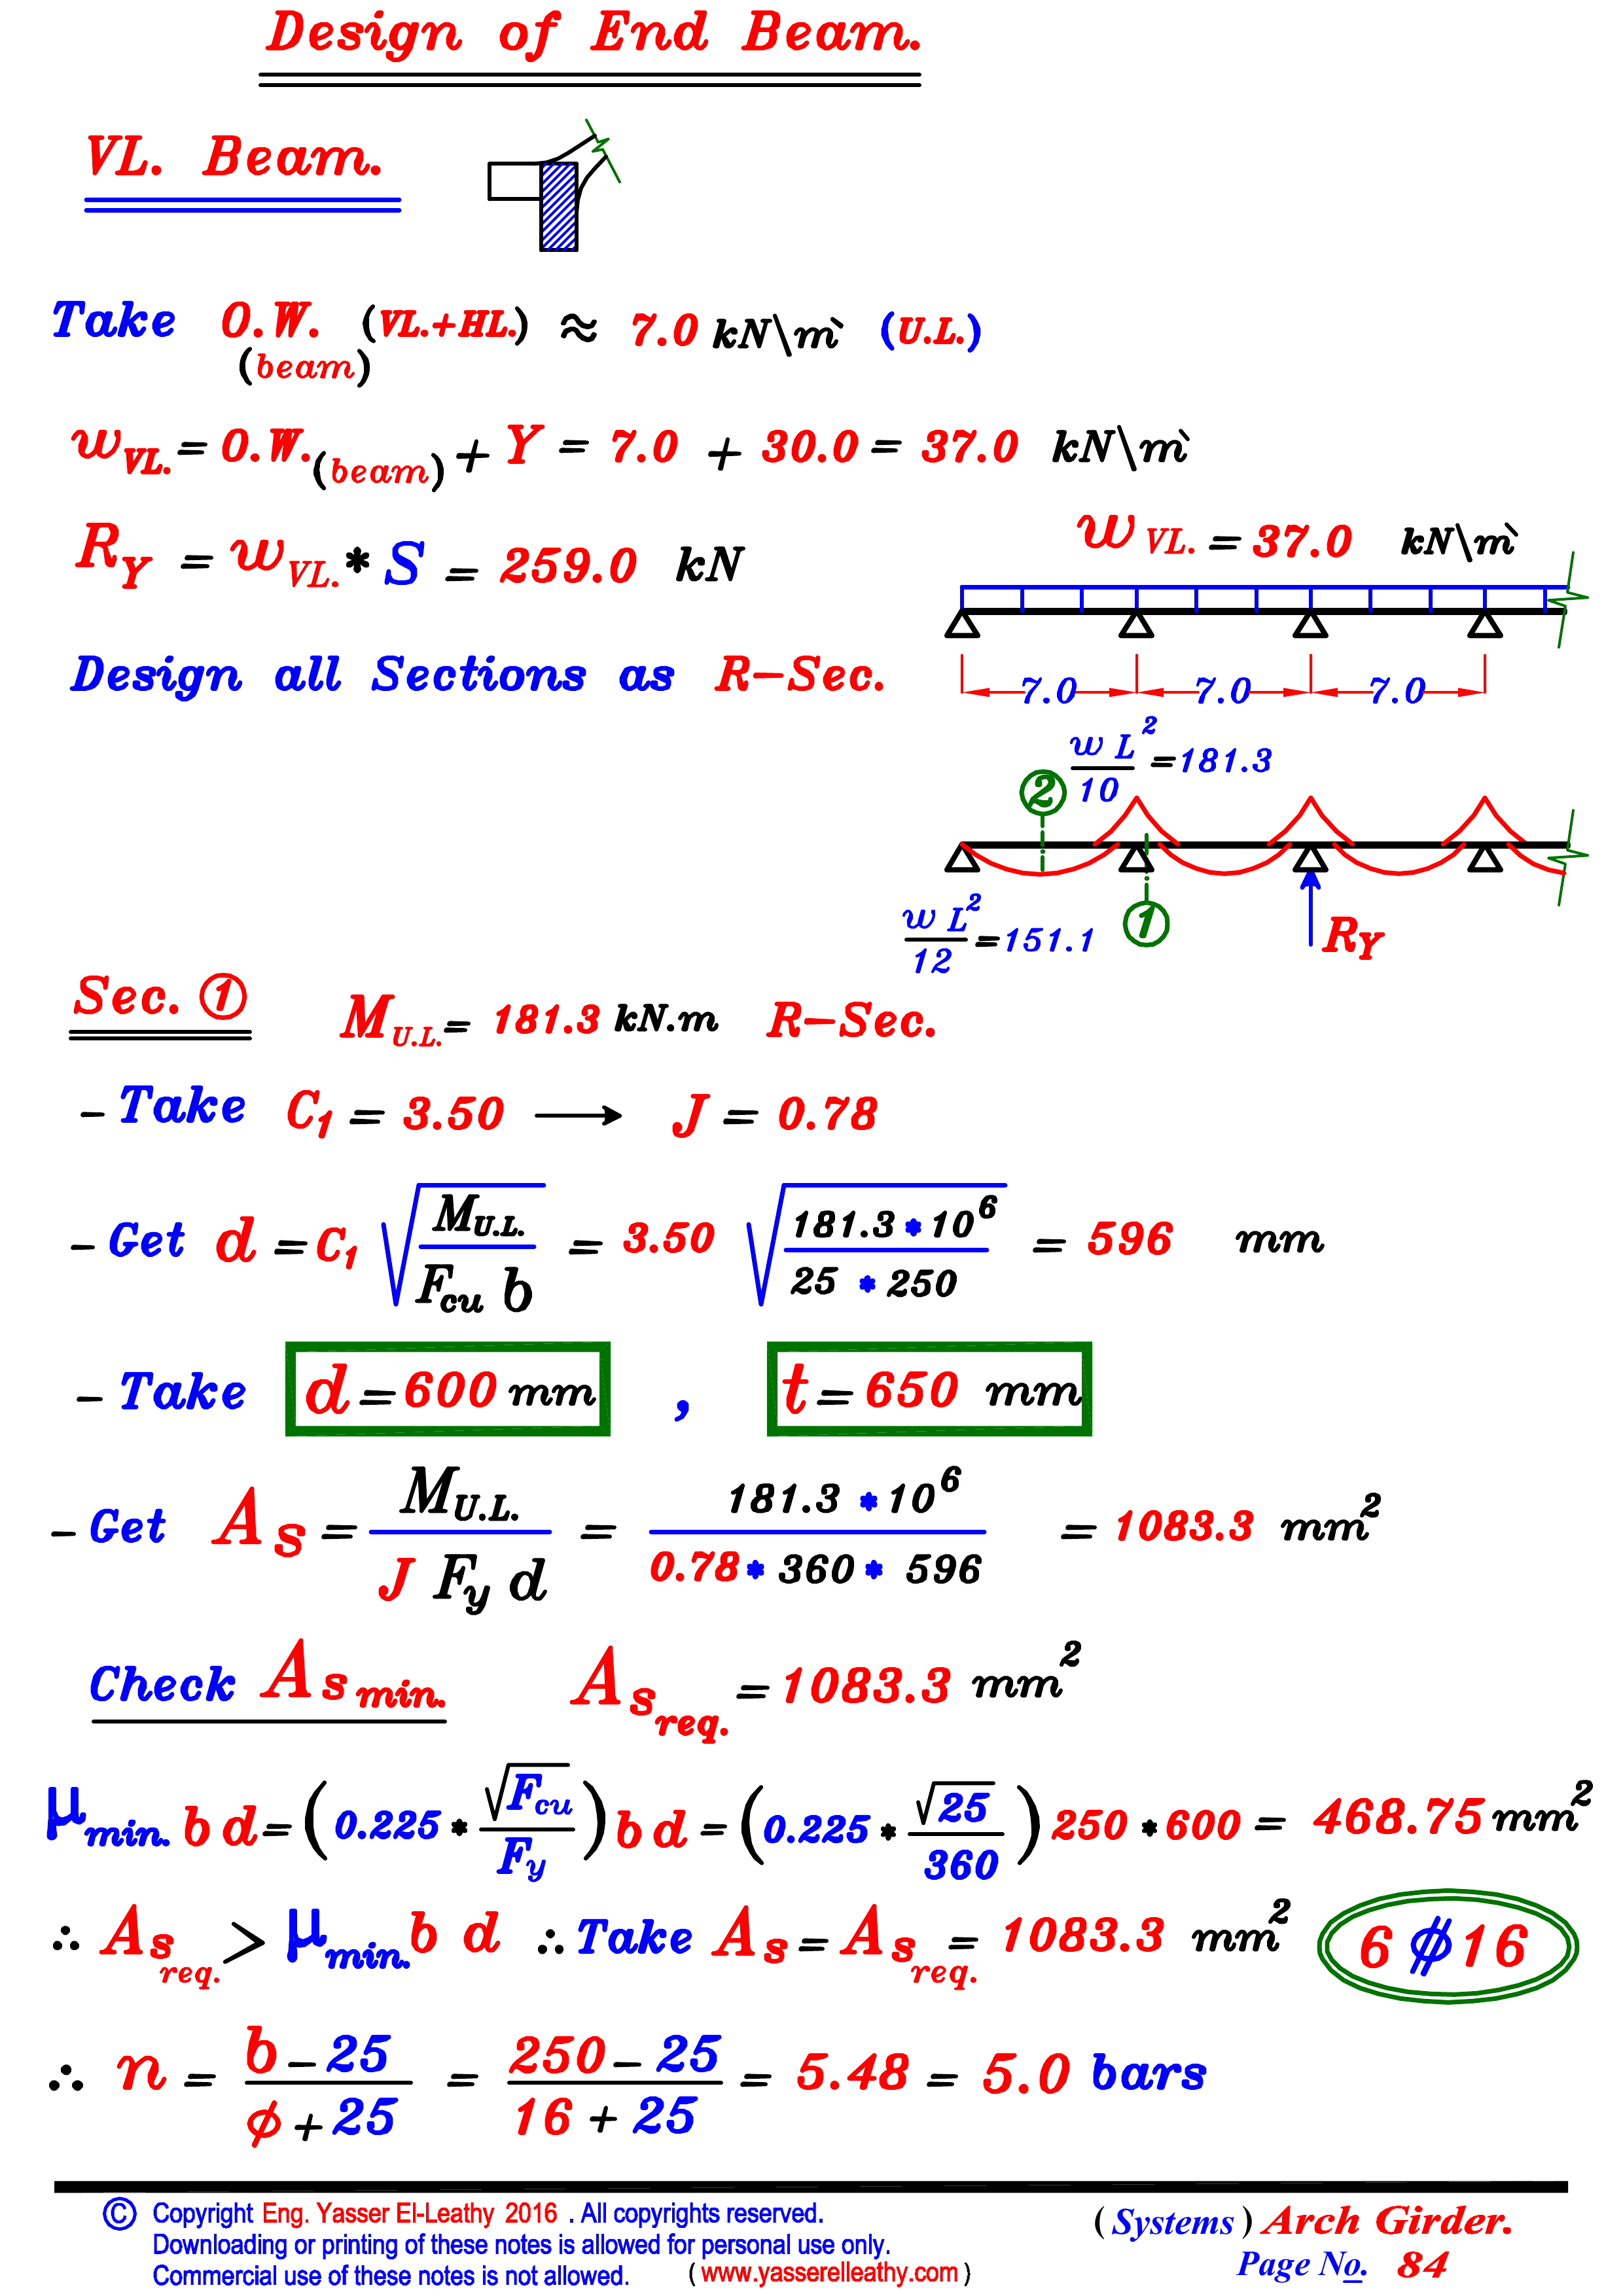 Design of End Beam.
VL. Beam.
Take O.W. (beam) (VL.+HL.) ≈ 7.0 kN\m` (U.L.)
w VL. = O.W. (beam) + Y = 7.0 + 30.0 = 37.0 kN\m`
R Y = w VL. * S = 259.0 kN
w VL. = 37.0 kN\m`
Design all Sections as R-Sec.
7.0 7.0 7.0
w L² / 10 = 181.3
2
w L² / 12 = 151.1
1
R Y
Sec. ① M U.L. = 181.3 kN.m R-Sec.
- Take C₁ = 3.50 ⟶ J = 0.78
- Get d = C₁ √(M U.L. / F cu b) = 3.50 √(181.3 * 10⁶ / 25 * 250) = 596 mm
- Take d = 600 mm , t = 650 mm
- Get A s = M U.L. / J F y d = 181.3 * 10⁶ / 0.78 * 360 * 596 = 1083.3 mm²
Check A s min. A s req. = 1083.3 mm²
μ min. b d = (0.225 * √F cu / F y) b d = (0.225 * √25 / 360) 250 * 600 = 468.75 mm²
∴ A s req. > μ min. b d ∴ Take A s = A s req. = 1083.3 mm² 6 ⌀ 16
∴ n = b - 25 / φ + 25 = 250 - 25 / 16 + 25 = 5.48 = 5.0 bars
© Copyright Eng. Yasser El-Leathy 2016 . All copyrights reserved.
Downloading or printing of these notes is allowed for personal use only.
Commercial use of these notes is not allowed. ( www.yasserelleathy.com )
( Systems ) Arch Girder.
Page No. 84